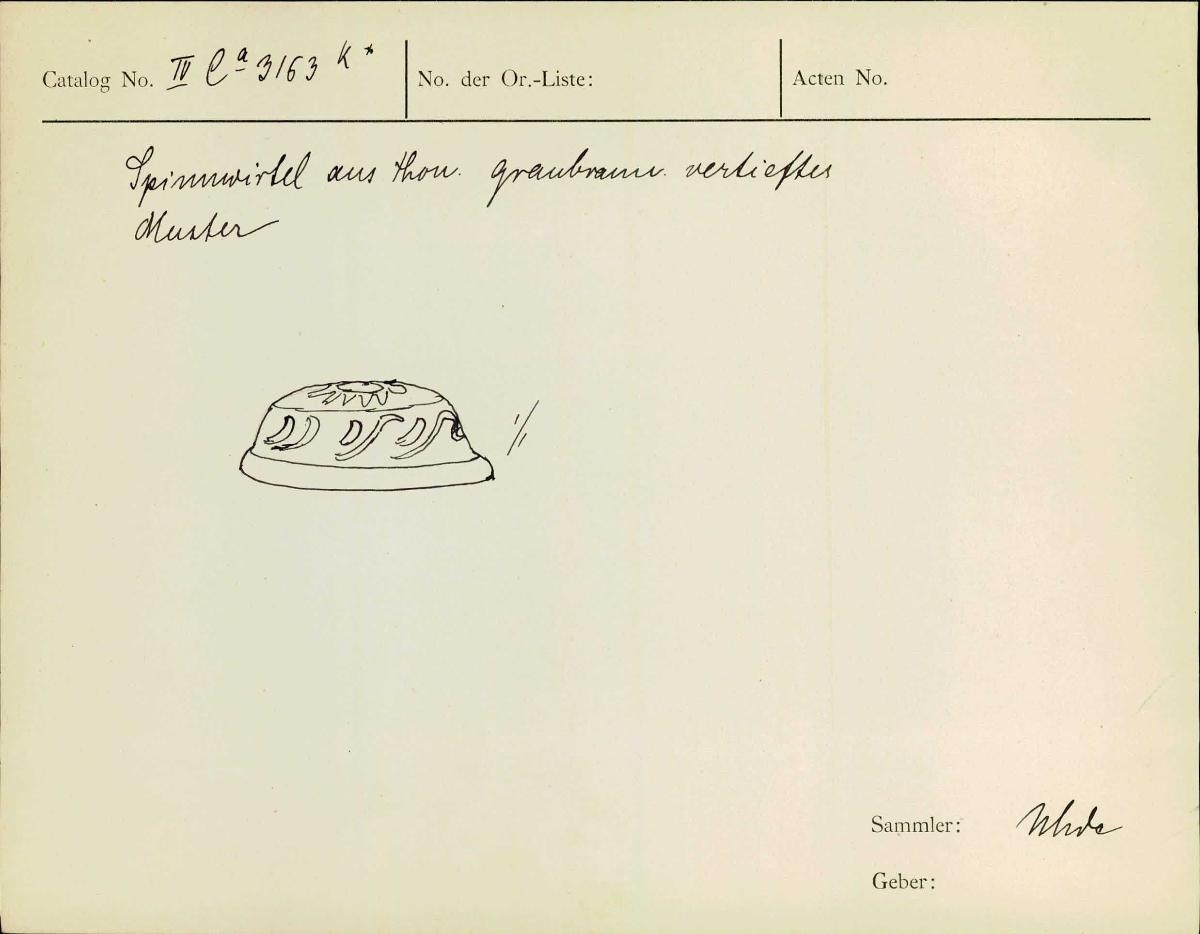 Catalog No. IV Ca 3163 k*
No. der Or.-Liste:
Acten No.
Spinnwirtel aus Thon. graubraun. vertieftes
Muster
1/1
Sammler: Uhde
Geber: